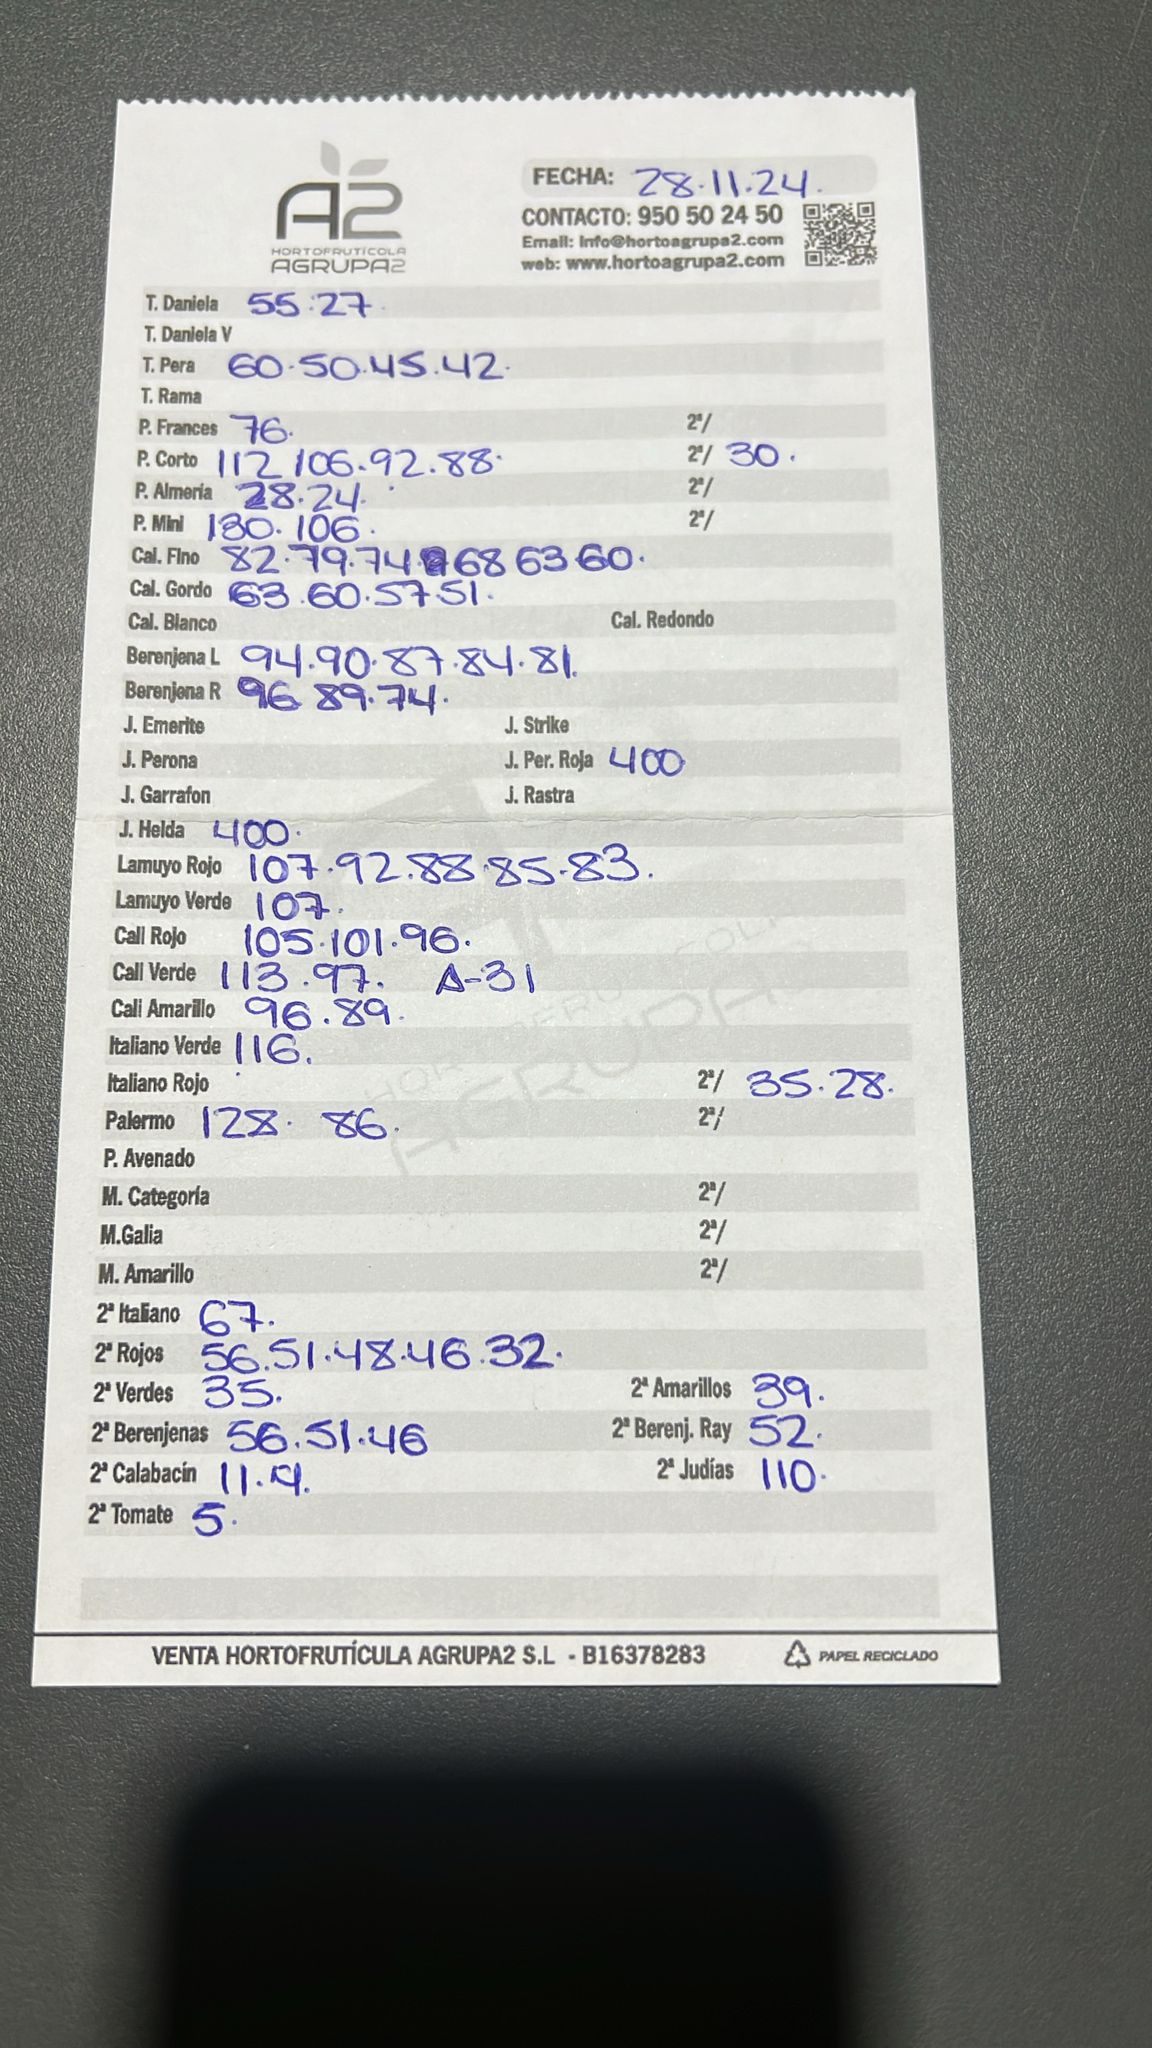 A2
HORTOFRUTÍCOLA
AGRUPA2
FECHA: 28.11.24.
CONTACTO: 950 50 24 50
Email: info@hortoagrupa2.com
web: www.hortoagrupa2.com
T. Daniela 55.27.
T. Daniela V
T. Pera 60.50.45.42.
T. Rama
P. Frances 76. 2ª/
P. Corto 112 106.92.88. 2ª/ 30.
P. Almería 28.24. 2ª/
P. Mini 130.106. 2ª/
Cal. Fino 82.79.74. 68 63 60.
Cal. Gordo 63.60.57.51.
Cal. Blanco Cal. Redondo
Berenjena L 94.90.87.84.81.
Berenjena R 96 89.74.
J. Emerite J. Strike
J. Perona J. Per. Roja 400
J. Garrafon J. Rastra
J. Helda 400.
Lamuyo Rojo 107.92.88.85.83.
Lamuyo Verde 107.
Cali Rojo 105.101.96.
Cali Verde 113.97. A-31
Cali Amarillo 96.89.
Italiano Verde 116.
Italiano Rojo 2ª/ 35.28.
Palermo 128. 86. 2ª/
P. Avenado
M. Categoría 2ª/
M.Galia 2ª/
M. Amarillo 2ª/
2ª Italiano 67.
2ª Rojos 56.51.48.46.32.
2ª Verdes 35. 2ª Amarillos 39.
2ª Berenjenas 56.51.46 2ª Berenj. Ray 52.
2ª Calabacín 11. 2ª Judías 110.
2ª Tomate 5.
VENTA HORTOFRUTÍCULA AGRUPA2 S.L - B16378283
PAPEL RECICLADO